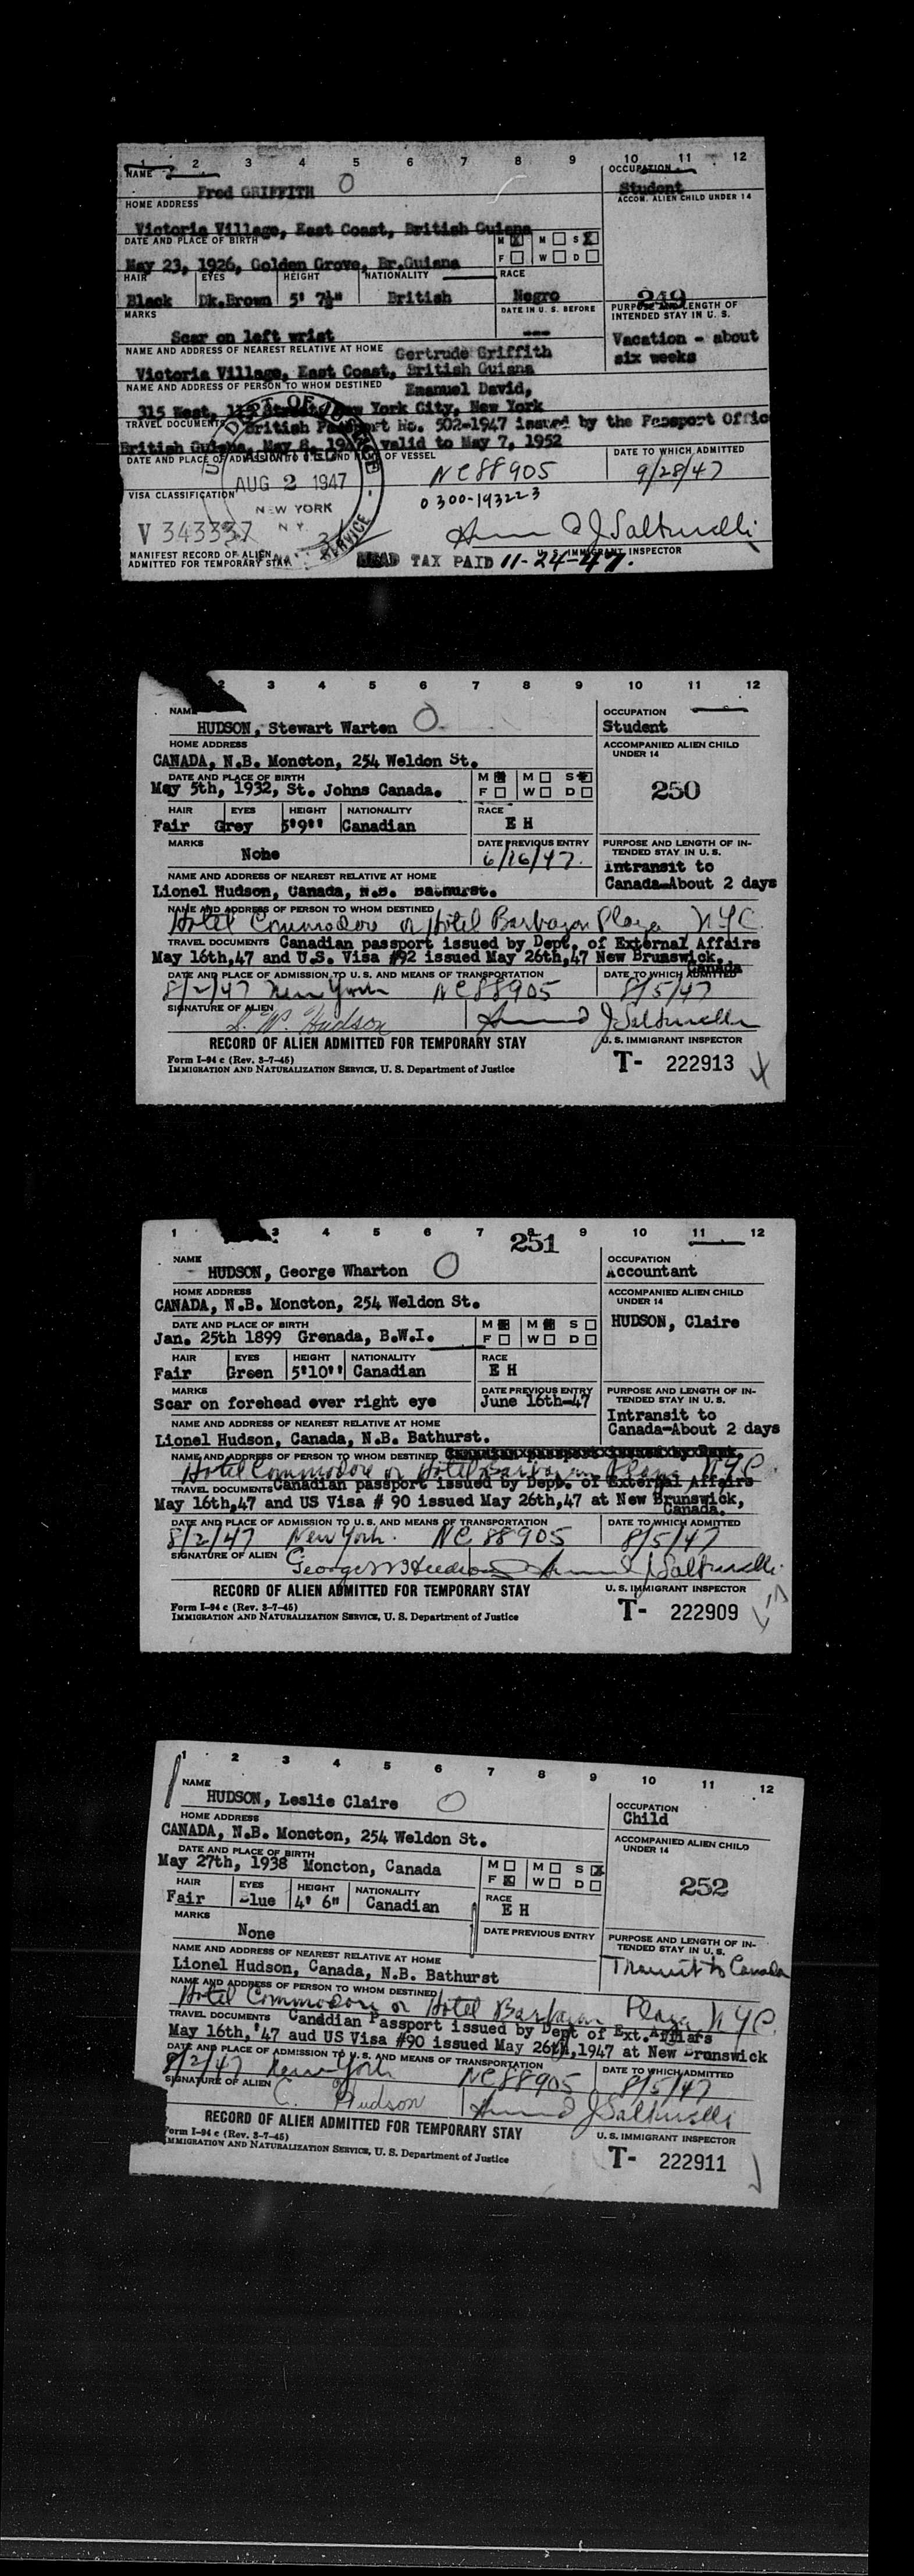 1 2 3 4 5 6 7 8 9 10 11 12
NAME
OCCUPATION
Fred GRIFFITH O
Student
HOME ADDRESS
ACCOM. ALIEN CHILD UNDER 14
Victoria Village, East Coast, British Guiana
DATE AND PLACE OF BIRTH
M M S
F W D
May 23, 1926, Golden Grove, Br.Guiana
HAIR EYES HEIGHT NATIONALITY RACE
Black Dk.Brown 5' 7½" British Negro
249
MARKS
DATE IN U. S. BEFORE
PURPOSE AND LENGTH OF INTENDED STAY IN U. S.
Scar on left wrist
---
Vacation - about
six weeks
NAME AND ADDRESS OF NEAREST RELATIVE AT HOME Gertrude Griffith
Victoria Village, East Coast, British Guiana
NAME AND ADDRESS OF PERSON TO WHOM DESTINED Emanuel David,
315 West, Street, New York City, New York
TRAVEL DOCUMENTS British Passport No. 502-1947 issued by the Passport Offic
British Guiana, May 8, 1947 valid to May 7, 1952
DATE AND PLACE OF ADMISSION TO U.S. AND NAME OF VESSEL
DATE TO WHICH ADMITTED
NC88905
9/28/47
AUG 2 1947
VISA CLASSIFICATION
0300-193223
NEW YORK
N.Y.
V 343337
SERVICE
U. S. IMMIGRANT INSPECTOR
MANIFEST RECORD OF ALIEN
ADMITTED FOR TEMPORARY STAY
HEAD TAX PAID 11-24-47.
2 3 4 5 6 7 8 9 10 11 12
NAME
OCCUPATION
HUDSON, Stewart Warten O
Student
HOME ADDRESS
ACCOMPANIED ALIEN CHILD
UNDER 14
CANADA, N.B. Moncton, 254 Weldon St.
DATE AND PLACE OF BIRTH
M M S
F W D
May 5th, 1932, St. Johns Canada.
250
HAIR EYES HEIGHT NATIONALITY RACE
Fair Grey 5'9'' Canadian E H
MARKS
DATE PREVIOUS ENTRY
PURPOSE AND LENGTH OF IN-
TENDED STAY IN U. S.
None
6/16/47.
Intransit to
Canada-About 2 days
NAME AND ADDRESS OF NEAREST RELATIVE AT HOME
Lionel Hudson, Canada, N.B. Bathurst.
NAME AND ADDRESS OF PERSON TO WHOM DESTINED
Hotel Commodore or Hotel Barbazon Plaza NYC.
TRAVEL DOCUMENTS Canadian passport issued by Dept. of External Affairs
May 16th,47 and U.S. Visa #92 issued May 26th,47 New Brunswick.
Canada
DATE AND PLACE OF ADMISSION TO U. S. AND MEANS OF TRANSPORTATION
DATE TO WHICH ADMITTED
8/2/47 New York NC88905 8/5/47
SIGNATURE OF ALIEN
S. W. Hudson
RECORD OF ALIEN ADMITTED FOR TEMPORARY STAY
U. S. IMMIGRANT INSPECTOR
Form I-94 c (Rev. 3-7-45)
IMMIGRATION AND NATURALIZATION SERVICE, U. S. Department of Justice
T- 222913
1 3 4 5 6 7 8 9 10 11 12
251
NAME
OCCUPATION
HUDSON, George Wharton O
Accountant
HOME ADDRESS
ACCOMPANIED ALIEN CHILD
UNDER 14
CANADA, N.B. Moncton, 254 Weldon St.
DATE AND PLACE OF BIRTH
M M S
F W D
HUDSON, Claire
Jan. 25th 1899 Grenada, B.W.I.
HAIR EYES HEIGHT NATIONALITY RACE
Fair Green 5'10'' Canadian E H
MARKS
DATE PREVIOUS ENTRY
PURPOSE AND LENGTH OF IN-
TENDED STAY IN U. S.
Scar on forehead over right eye
June 16th-47
Intransit to
Canada-About 2 days
NAME AND ADDRESS OF NEAREST RELATIVE AT HOME
Lionel Hudson, Canada, N.B. Bathurst.
NAME AND ADDRESS OF PERSON TO WHOM DESTINED
Hotel Commodore or Hotel Barbazon Plaza NYC
TRAVEL DOCUMENTS Canadian passport issued by Dept. of External Affairs
May 16th,47 and US Visa # 90 issued May 26th,47 at New Brunswick,
Canada.
DATE AND PLACE OF ADMISSION TO U. S. AND MEANS OF TRANSPORTATION
DATE TO WHICH ADMITTED
8/2/47 New York. NC 88905 8/5/47
SIGNATURE OF ALIEN
George W Hudson
RECORD OF ALIEN ADMITTED FOR TEMPORARY STAY
U. S. IMMIGRANT INSPECTOR
Form I-94 c (Rev. 3-7-45)
IMMIGRATION AND NATURALIZATION SERVICE, U. S. Department of Justice
T- 222909
1 2 3 4 5 6 7 8 9 10 11 12
NAME
OCCUPATION
HUDSON, Leslie Claire O
Child
HOME ADDRESS
ACCOMPANIED ALIEN CHILD
UNDER 14
CANADA, N.B. Moncton, 254 Weldon St.
DATE AND PLACE OF BIRTH
M M S
F W D
May 27th, 1938 Moncton, Canada
252
HAIR EYES HEIGHT NATIONALITY RACE
Fair Blue 4' 6" Canadian E H
MARKS
DATE PREVIOUS ENTRY
PURPOSE AND LENGTH OF IN-
TENDED STAY IN U. S.
None
Transit to Canada
NAME AND ADDRESS OF NEAREST RELATIVE AT HOME
Lionel Hudson, Canada, N.B. Bathurst
NAME AND ADDRESS OF PERSON TO WHOM DESTINED
Hotel Commodore or Hotel Barbazon Plaza NYC.
TRAVEL DOCUMENTS Canddian Passport issued by Dept of Ext.Affiars
May 16th,'47 aud US Visa #90 issued May 26th,1947 at New Brunswick
DATE AND PLACE OF ADMISSION TO U. S. AND MEANS OF TRANSPORTATION
DATE TO WHICH ADMITTED
8/2/47 New York NC88905 8/5/47
SIGNATURE OF ALIEN
C. Hudson
RECORD OF ALIEN ADMITTED FOR TEMPORARY STAY
U. S. IMMIGRANT INSPECTOR
Form I-94 c (Rev. 3-7-45)
IMMIGRATION AND NATURALIZATION SERVICE, U. S. Department of Justice
T- 222911